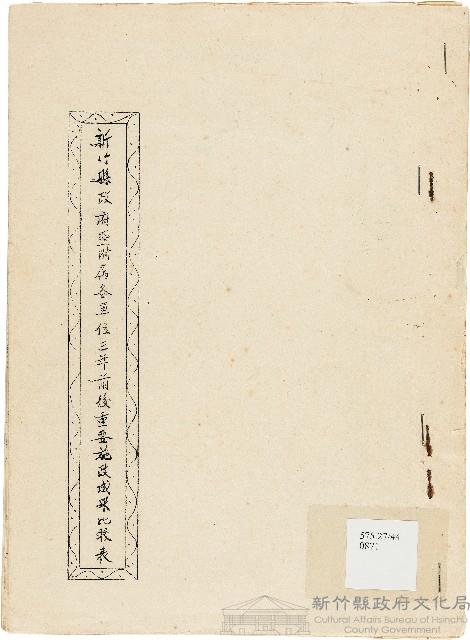 新竹縣政府暨附屬各單位三年前後重要施政成果比較表
575.27/44
087
新竹縣政府文化局
Cultural Affairs Bureau of Hsinchu
County Government